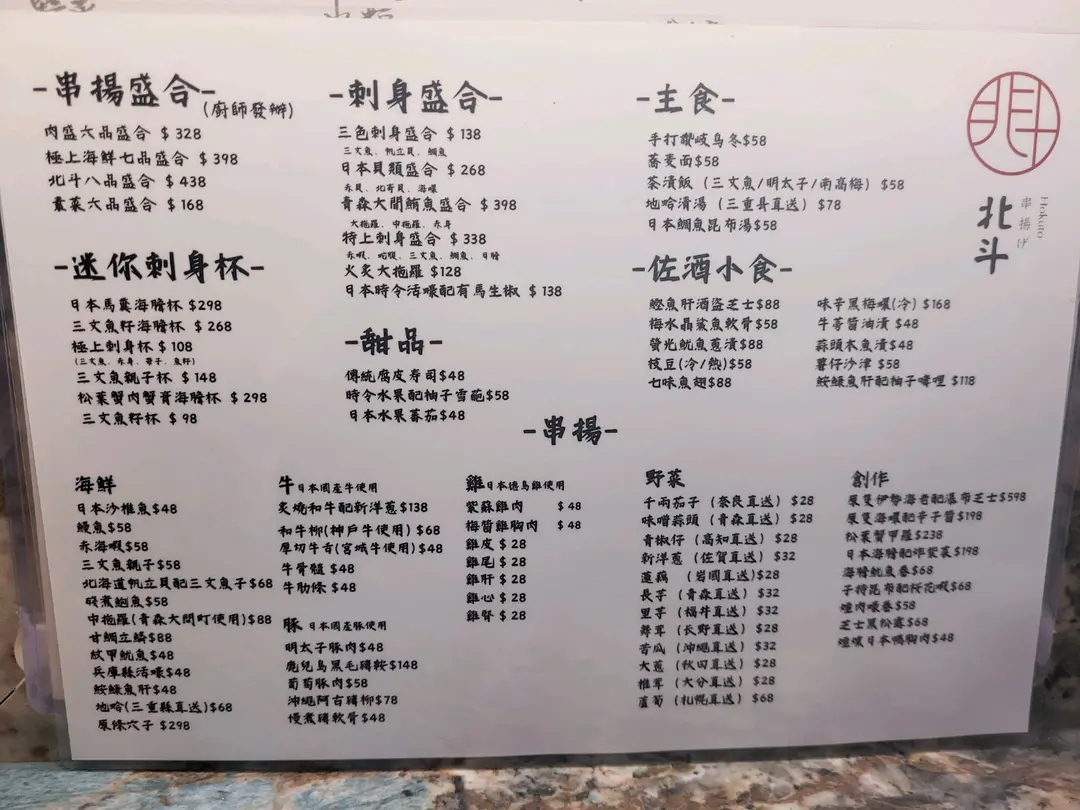 -串揚盛合-
(廚師發辦)
肉盛六品盛合 $328
極上海鮮七品盛合 $398
北斗八品盛合 $438
素菜六品盛合 $168
-迷你刺身杯-
日本馬糞海膽杯 $298
三文魚籽海膽杯 $268
極上刺身杯 $108
(三文魚、赤身、帶子、魚籽)
三文魚親子杯 $148
松葉蟹肉蟹膏海膽杯 $298
三文魚籽杯 $98
-刺身盛合-
三色刺身盛合 $138
三文魚、帆立貝、鯛魚
日本貝類盛合 $268
赤貝、北寄貝、海螺
青森大間鮪魚盛合 $398
大拖羅、中拖羅、赤身
特上刺身盛合 $338
火炙大拖羅 $128
日本時令活蠔配有馬生椒 $138
-甜品-
傳統腐皮壽司$48
時令水果配柚子雪葩$58
日本水果蕃茄$48
-主食-
手打讚岐烏冬$58
蕎麥面$58
茶漬飯 (三文魚/明太子/南高梅) $58
地哈清湯 (三重縣直送) $78
日本鯛魚昆布湯$58
-佐酒小食-
鰹魚肝酒盜芝士$88
梅水晶鯊魚軟骨$58
螢光魷魚蔥漬$88
枝豆(冷/熱)$58
七味魚翅$88
味辛黑梅螺(冷) $168
牛蒡醬油漬 $48
蒜頭木魚漬$48
薯仔沙津 $58
鮟鱇魚肝配柚子啫喱 $118
北斗
串揚げ
Hokuto
-串揚-
海鮮
日本沙推魚$48
鰻魚$58
赤海蝦$58
三文魚親子$58
北海道帆立貝配三文魚子$68
酸煮鮑魚$58
中拖羅(青森大間町使用)$88
甘鯛立鱗$88
紋甲魷魚$48
兵庫縣活蠔$48
鮟鱇魚肝$48
地哈(三重縣直送)$68
原條穴子 $298
牛 日本國産牛使用
炙燒和牛配新洋蔥$138
和牛柳(神戶牛使用) $68
厚切牛舌(宮城牛使用)$48
牛骨髓 $48
牛肋條 $48
豚 日本國産豚使用
明太子豚肉$48
鹿兒島黑毛豬鞍$148
葡萄豚肉$58
沖繩阿古豬柳$78
慢煮豬軟骨$48
雞 日本德島雞使用
紫蘇雞肉 $48
梅醬雞胸肉 $48
雞皮 $28
雞尾 $28
雞肝 $28
雞心 $28
雞腎 $28
野菜
千両茄子 (奈良直送) $28
味噌蒜頭 (青森直送) $28
青椒仔 (高知直送) $28
新洋蔥 (佐賀直送) $32
蓮藕 (岩國直送)$28
長芋 (青森直送) $32
里芋 (福井直送) $32
舞茸 (長野直送) $28
苦瓜 (沖繩直送) $32
大蔥 (秋田直送) $28
椎茸 (大分直送) $28
蘆筍 (札幌直送) $68
創作
原隻伊勢海老配瀑布芝士$598
原隻海螺配辛子醬$198
松葉蟹甲羅$238
日本海膽配炸紫菜$198
海膽魷魚卷$68
子持昆布配桜花蝦$68
煙肉蠔卷$58
芝士黑松露$68
煙燻日本鴨胸肉$48